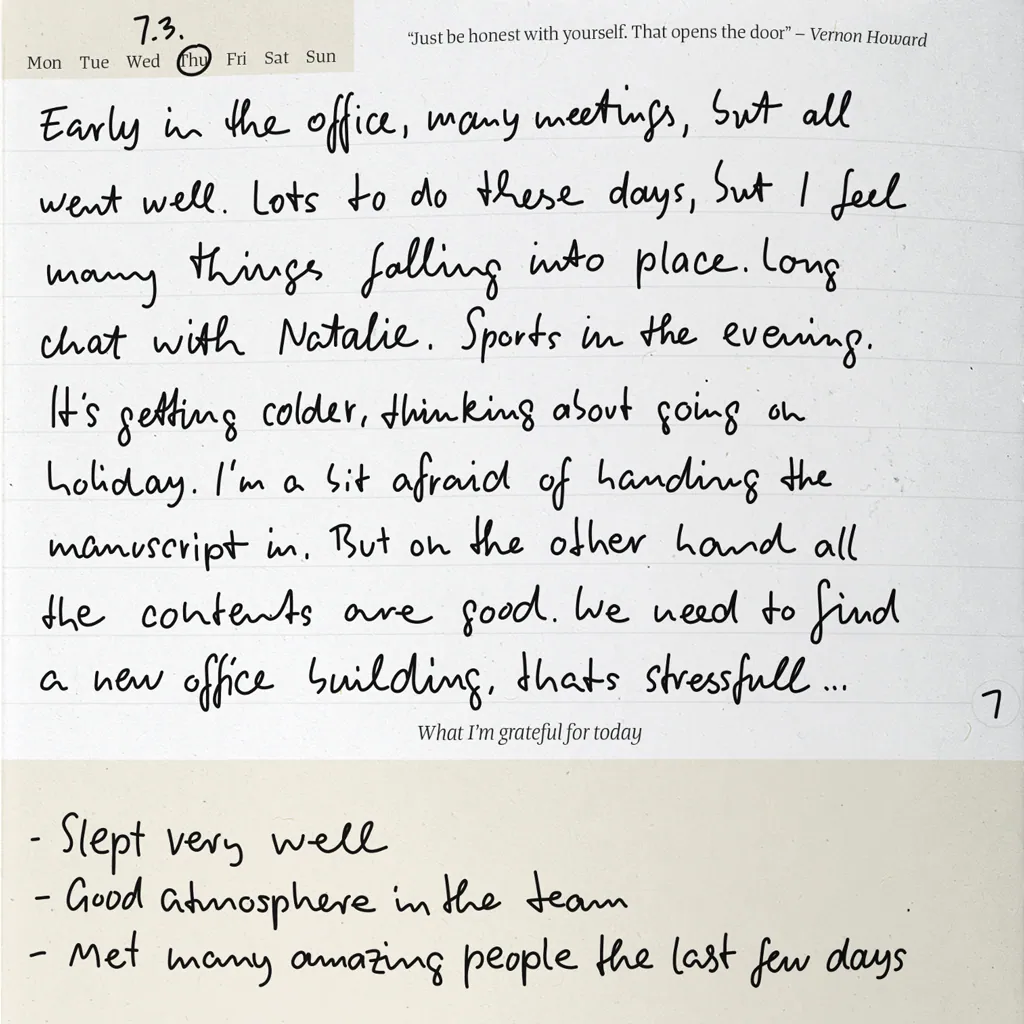 7.3.
Mon Tue Wed Thu Fri Sat Sun
“Just be honest with yourself. That opens the door” – Vernon Howard
Early in the office, many meetings, but all
went well. Lots to do these days, but I feel
many things falling into place. Long
chat with Natalie. Sports in the evening.
It's getting colder, thinking about going on
holiday. I'm a bit afraid of handing the
manuscript in. But on the other hand all
the contents are good. We need to find
a new office building, thats stressfull...
7
What I'm grateful for today
- Slept very well
- Good atmosphere in the team
- Met many amazing people the last few days